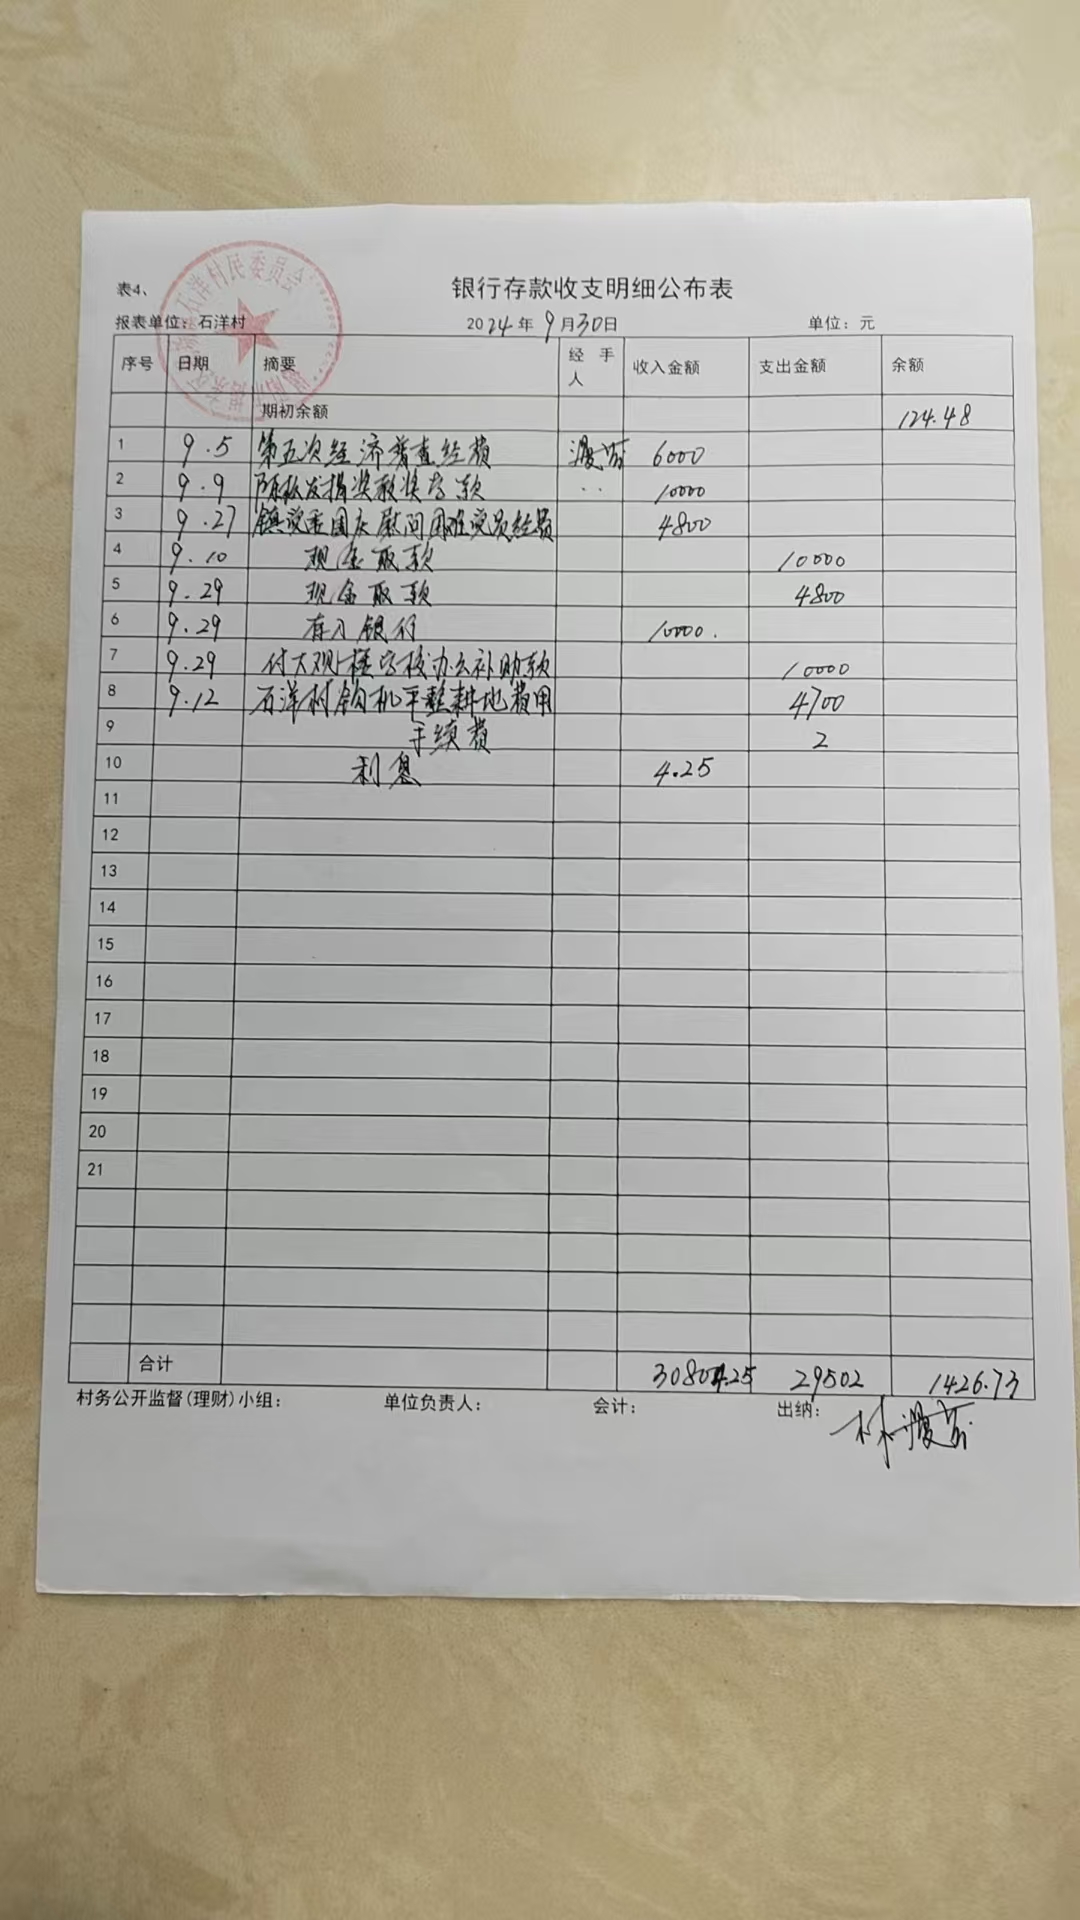 表4、
银行存款收支明细公布表
报表单位：石洋村 2024年9月30日 单位：元
序号 日期 摘要 经手人 收入金额 支出金额 余额
期初余额 124.48
1 9.5 第五次经济普查经费 6000
2 9.9 捐奖教奖学款 10000
3 9.27 镇党委国庆慰问困难党员经费 4800
4 9.10 现金取款 10000
5 9.29 现金取款 4800
6 9.29 存入银行 10000.
7 9.29 付大观楼学校办公补助款 10000
8 9.12 石洋村钩机平整耕地费用 4700
9 手续费 2
10 利息 4.25
11
12
13
14
15
16
17
18
19
20
21
合计 30804.25 29502 1426.73
村务公开监督(理财)小组： 单位负责人： 会计： 出纳：
石洋村民委员会